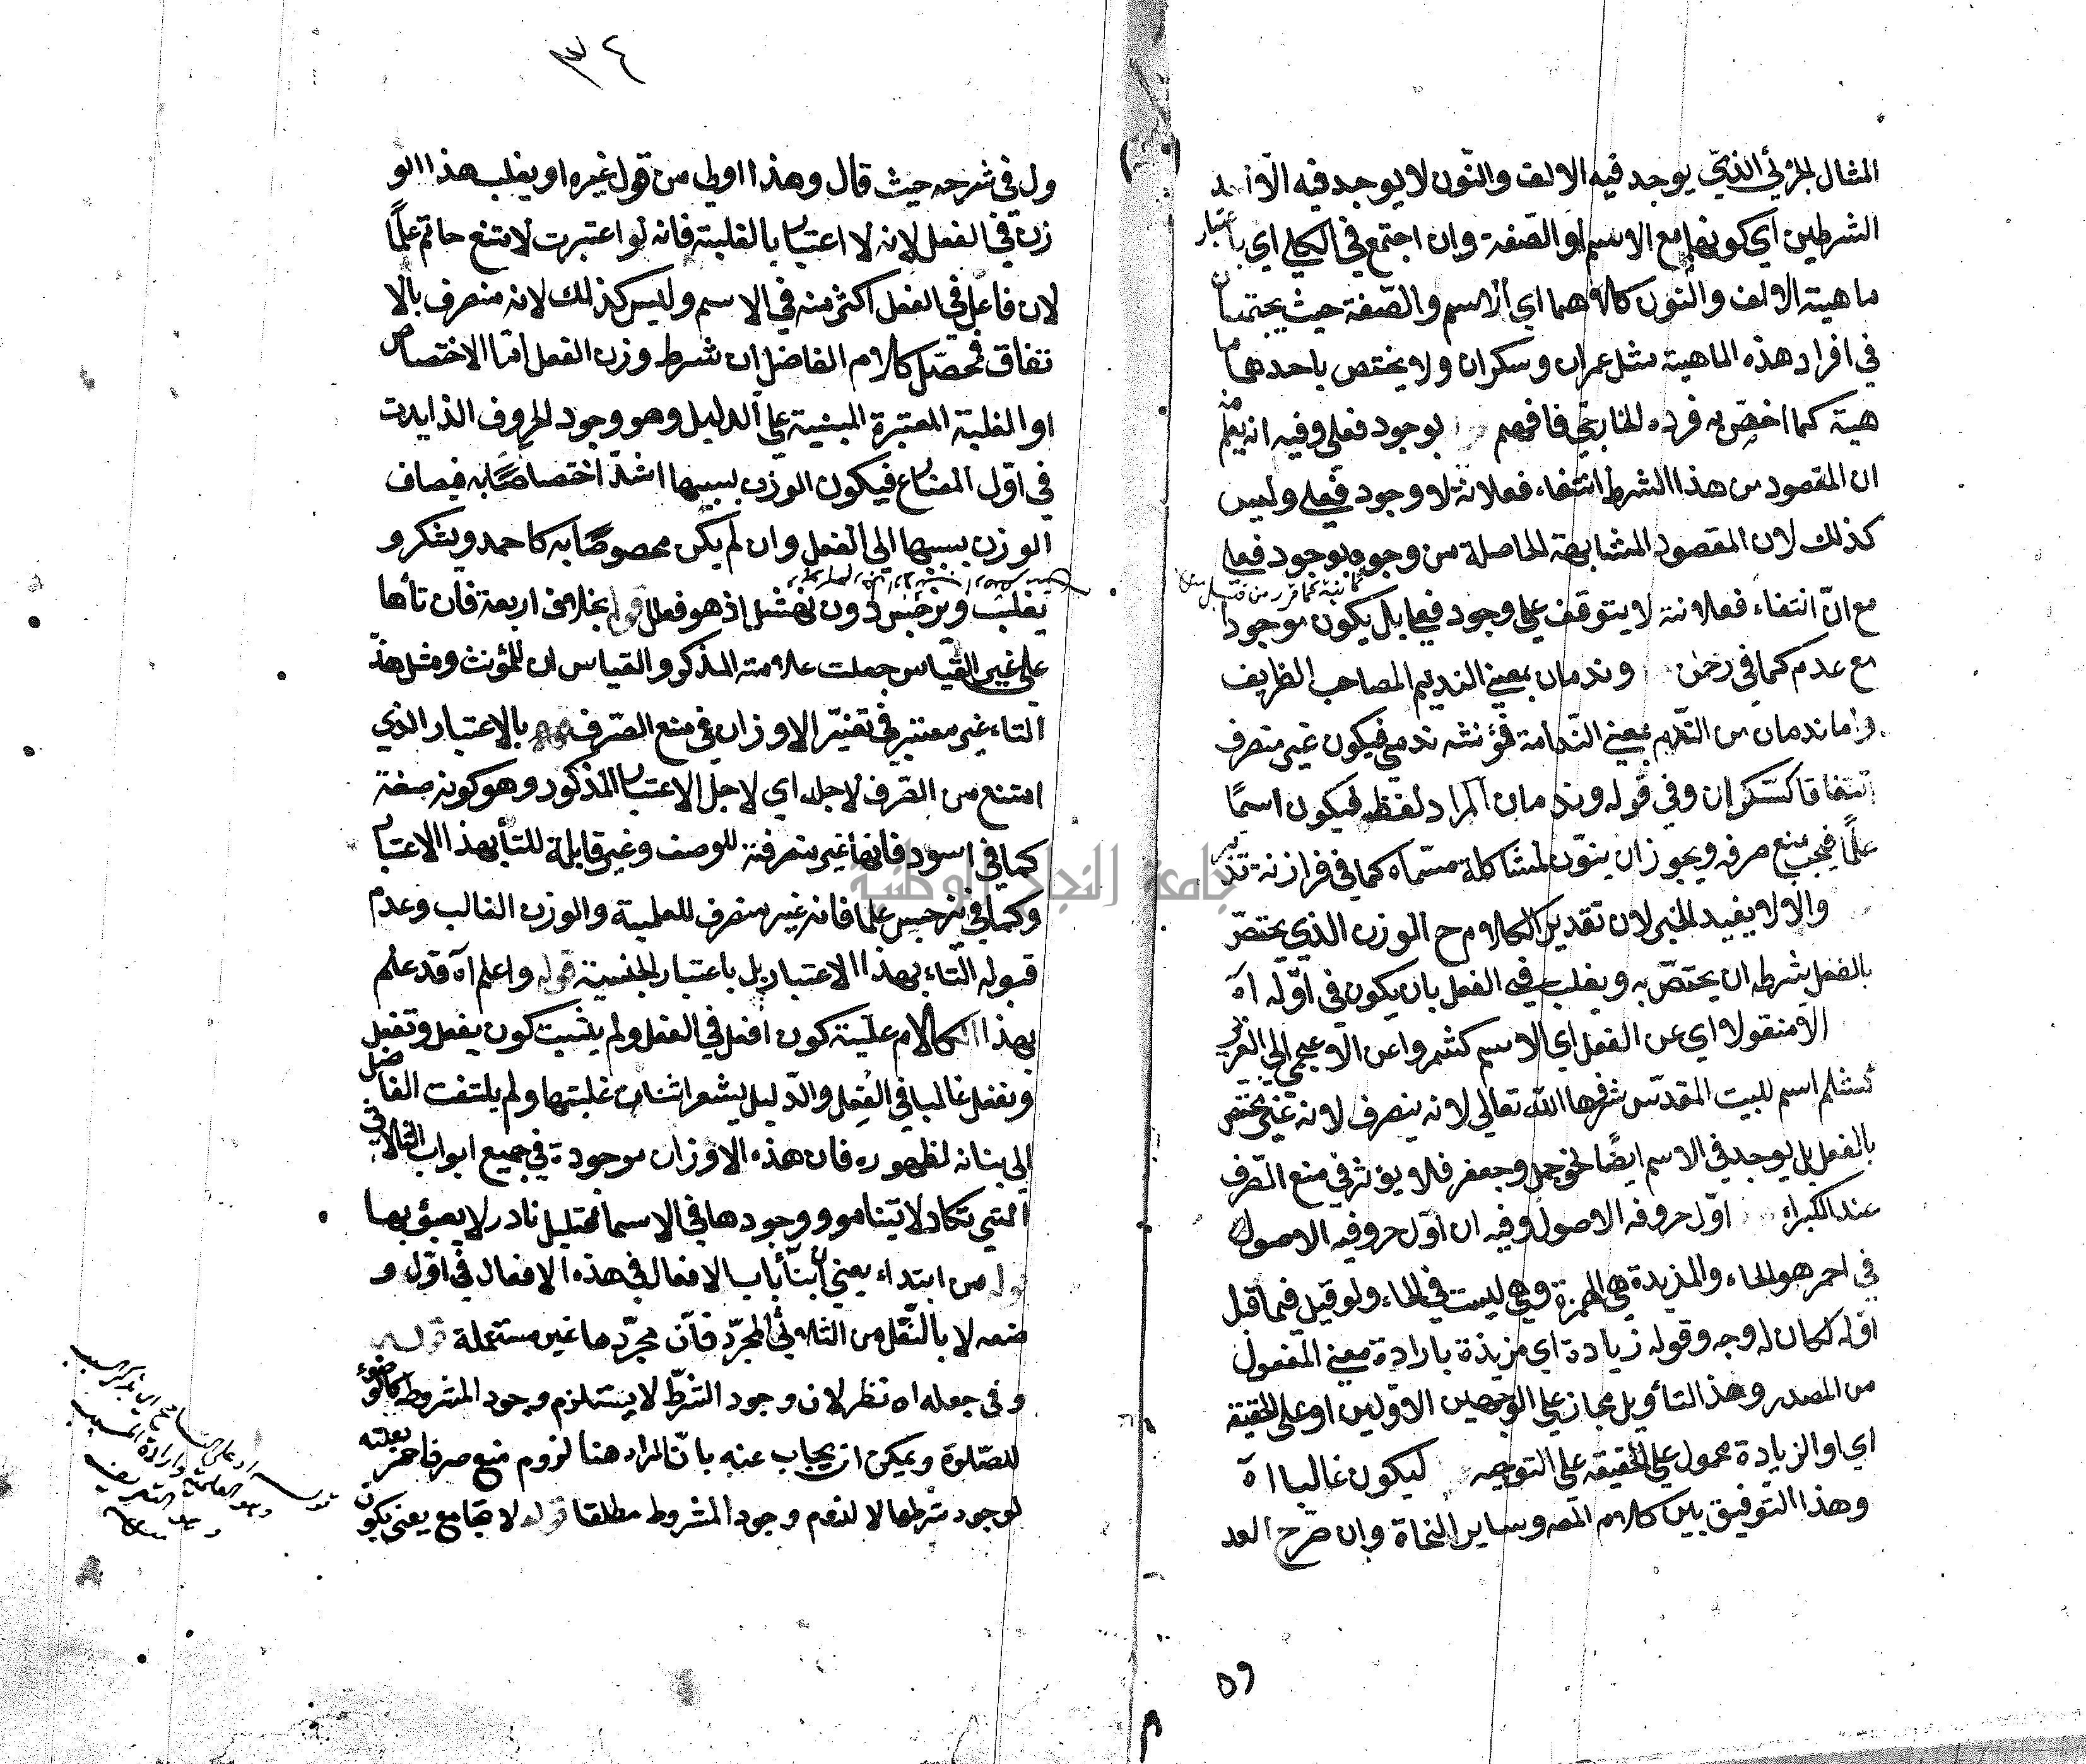 المثال الجزئي الذي يوجد فيه الالف والنون لا يوجد فيه الا احد
الشرطين اي كونهما مع الاسم او الصفة وان اجتمع في الكلي اي باعتبار
ماهية الالف والنون كلاهما اي الاسم والصفة حيث يجتمعان
في افراد هذه الماهية مثل عمران وسكران ولا يختص باحدهما ما
هية كما اختص به فرده الخارجي فافهم بوجود فعلى وفيه انه يعلم منه
ان المقصود من هذا الشرط انتفاء فعلانة لا وجود فعلى وليس
كذلك لان المقصود المشابهة الحاصلة من وجوه بوجود فعلى
مع ان انتفاء فعلانة لا يتوقف على وجود فعلى بل يكون موجودا
مع عدم كما في رحمن وندمان بمعنى النديم المصاحب الظريف
واما ندمان من الندم بمعنى الندامة فمؤنثه ندمى فيكون غير منصرف
اتفاقا كسكران وفي قوله وندمان المراد لفظه فيكون اسمًا
علمًا فيجب منع صرفه ويجوز ان ينون لمشاكلة مسماه كما في فرازنة تدبر
والا لا يفيد الخبر لان تقدير الكلام ح الوزن الذي يختص
بالفعل بشرطه ان يختص به ويغلب في الفعل بان يكون في اوله اه
الا منقولا اي عن الفعل اي الاسم كشمر واعن الاعجمي الى العربي
كشلم اسم للبيت المقدس شرفها الله تعالى لانه ينصرف لانه غير مختص
بالفعل بل يوجد في الاسم ايضًا نحو جمل وجعفر فلا يؤثر في منع الصرف
عند الكبراء اول حروفه الاصول وفيه ان اول حروفه الاصول
في احمر هو الحاء والمزيدة هي الهمزة وهي ليست في الحاء ولو قيل فيما قبل
اوله لكان له وجه وقوله زيادة اي مزيدة بارادة معنى المفعول
من المصدر وهذا التأويل مجاز على الوجهين الاولين او على الحقيقة
اي او الزيادة محمول على الحقيقة على التوجيه ليكون غالبا اه
وهذا التوفيق بين كلام المص وساير النحاة وان صرح العد
٥٩
٣٤
ول في شرحه حيث قال وهذا اولى من قول غيره او يغلب هذا الو
زن في الفعل لانه لا اعتبار بالغلبة فانه لو اعتبرت لامتنع حاتم علمًا
لان فاعل في الفعل اكثر منه في الاسم وليس كذلك لانه منصرف بالا
تفاق فمحصل كلام الفاضل ان شرط وزن الفعل اما الاختصاص
او الغلبة المعتبرة المبنية على الدليل وهو وجود الحروف الزايدت
في اول المضارع فيكون الوزن بسببها اشد اختصاصًا به فيضاف
الوزن بسببها الى الفعل وان لم يكن مخصوصًا به كاحمد ويشكر و
يغلب ونرجس دون نهشل اذ هو فعلل قوله بخلاف اربعة فان تأها
على غير القياس جعلت علامة المذكر والقياس ان للمؤنث ومثل هذ
التاء غير معتبر في تغير الاوزان في منع الصرف بالاعتبار الذي
امتنع من الصرف لاجله اي لاجل الاعتبار المذكور وهو كونه صفة
كما في اسود فانها غير منصرفة للوصف وغير قابلة للتأ بهذا الاعتبار
وكما في نرجس علما فانه غير منصرف للعلمية والوزن الغالب وعدم
قبوله التاء بهذا الاعتبار بل باعتبار الجنسية قوله واعلم اه قد علم
بهذا الكلام علية كون افعل في الفعل ولم يثبت كون يفعل وتفعل
ونفعل غالبا في الفعل والدليل يشعر اثبات غلبتها ولم يلتفت الفاضل
الى بيانه لظهوره فان هذه الاوزان موجودة في جميع ابواب الثلاثي
التي تكاد لا تتناهى ووجودها في الاسماء قليل نادر لا يعبؤ بها
قوله من ابتداء يعني ان بناء باب الافعال في هذه الافعال في اول و
ضعه لا بالنقل من الثلاثي المجرد فان مجردها غير مستعملة قوله
وفي جعله اه نظر لان وجود الشرط لا يستلزم وجود المشروط كالوضوء
للصلوة ويمكن ان يجاب عنه بان المراد هنا لزوم منع صرف احمر بعلتيه
لوجود شرطها لا لذوم وجود المشروط مطلقا قوله لا تجامع يعني يكون
جامعة النجاح الوطنية